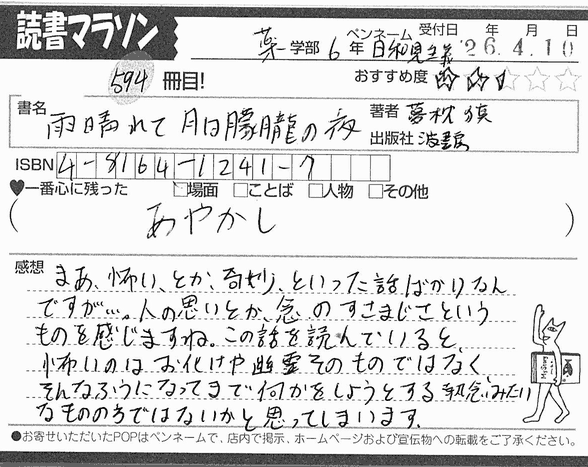 読書マラソン
薬学部 6年 ペンネーム 日和見主義 受付日 年 月 日 '26.4.10
594冊目! おすすめ度 ★★☆☆☆
書名 雨晴れて月は朦朧の夜 著者 夢枕獏
出版社 波書房
ISBN 4-8164-1241-7
♥一番心に残った □場面 □ことば □人物 □その他
( あやかし )
感想 まあ、怖い、とか、奇妙、といった話ばかりなん
ですが…。人の思いとか、念のすさまじさという
ものを感じますね。この話を読んでいると、
怖いのはお化けや幽霊そのものではなく、
そんなふうになってまで何かをしようとする執念みたい
なもののほうではないかと思ってしまいます。
●お寄せいただいたPOPはペンネームで、店内で掲示、ホームページおよび宣伝物への転載をご了承ください。